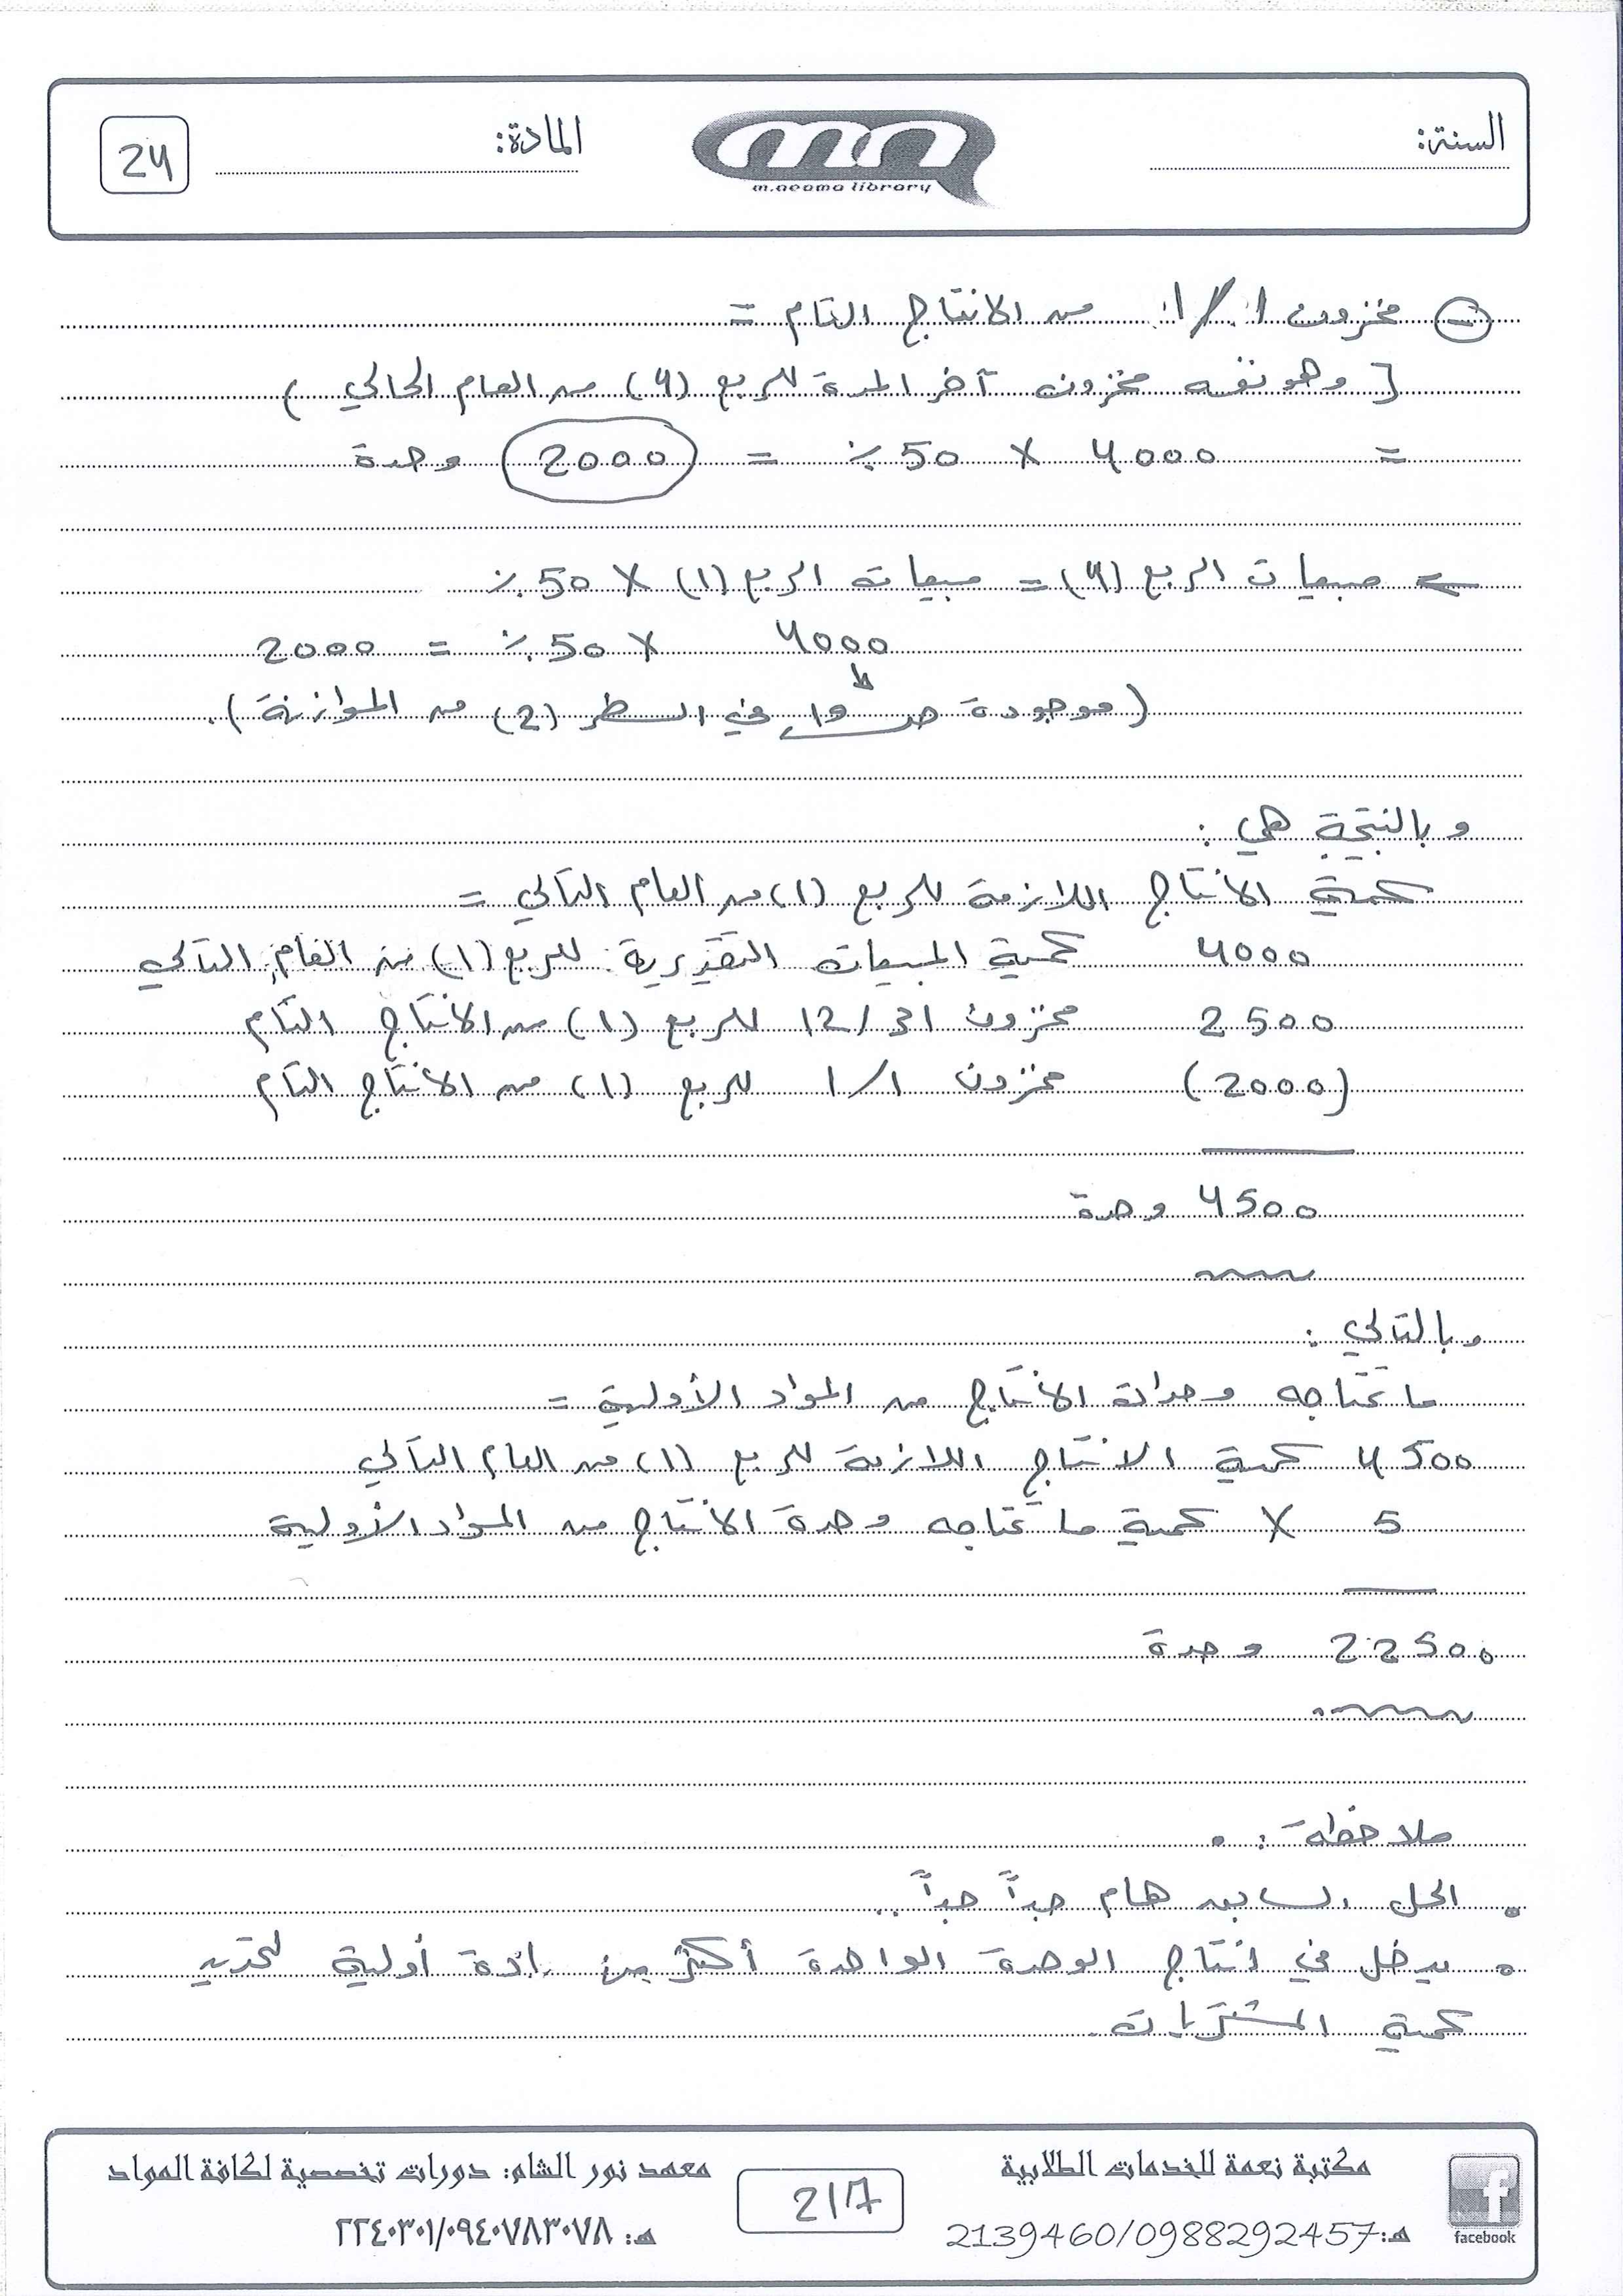 السنة:
m.neama library
المادة:
24
(-) مخزون 1/1 من الانتاج التام =
[ وهو نفسه مخزون آخر المدة للربع (4) من العام الحالي )
= 4000 X 50 % = 2000 وحدة
مبيعات الربع (4) = مبيعات الربع (1) X 50 %
4000 X 50 % = 2000
(موجودة في السطر (2) من الموازنة).
وبالنتيجة هي :
كمية الانتاج اللازمة للربع (1) من العام التالي =
4000 كمية المبيعات التقديرية للربع (1) من العام التالي
2500 مخزون 31/12 للربع (1) من الانتاج التام
(2000) مخزون 1/1 للربع (1) من الانتاج التام
4500 وحدة
وبالتالي :
ما تحتاجه وحدات الانتاج من المواد الأولية =
4500 كمية الانتاج اللازمة للربع (1) من العام التالي
5 X كمية ما تحتاجه وحدة الانتاج من المواد الأولية
22500 وحدة
ملاحظة :
• الحل السابق هام جداً جداً ..
• يدخل في انتاج الوحدة الواحدة أكثر من مادة أولية لتحديد
كمية المشتريات.
facebook
مكتبة نعمة للخدمات الطلابية
هـ: 2139460/0988292457
217
معهد نور الشام: دورات تخصصية لكافة المواد
هـ: ٢٢٤٠٣٠١/٠٩٤٠٧٨٣٠٧٨